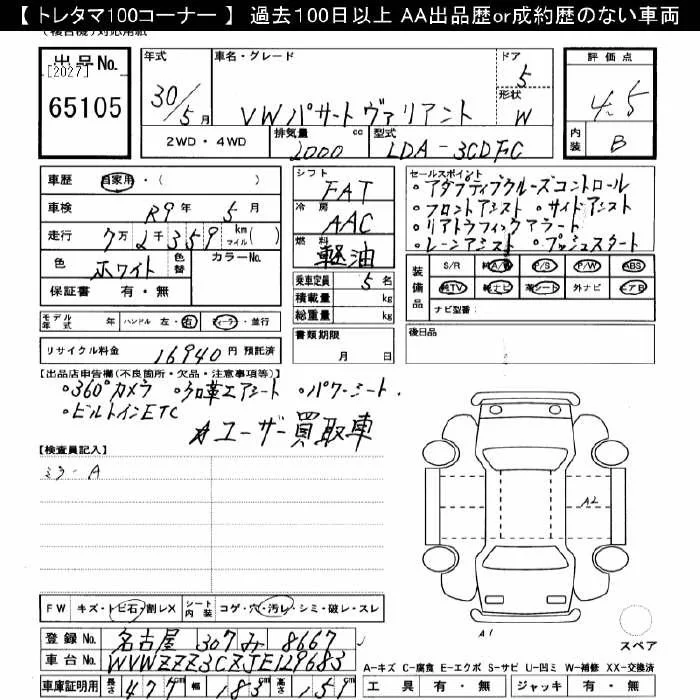 【 トレタマ100コーナー 】 過去100日以上 AA出品歴or成約歴のない車両
出品No.
[2027]
65105
年式
30/5月
車名・グレード
VW パサート ヴァリアント
ドア
5
形状
W
評価点
4.5
内装
B
2WD・4WD
排気量 2000 cc
型式 LDA-3CDFC
車歴 自家用・( )
車検 R9年 5月
走行 7万2千359 km マイル( )
色 ホワイト 色替 カラーNo.
保証書 有・無
シフト
FAT
冷房
AAC
燃料
軽油
乗車定員 5名
積載量 kg
総重量 kg
セールスポイント
・アダプティブクルーズコントロール
・フロントアシスト ・サイドアシスト
・リアトラフィックアラート
・レーンアシスト ・プッシュスタート
装備品
S/R 純A/W P/S P/W ABS
純TV 純ナビ 革シート 外ナビ エアB
ナビ型番:
モデル年式 年 ハンドル 左・右 ディーラー・並行
リサイクル料金 16940円 預託済
書類期限
月 日
後日品
【出品店申告欄(不良箇所・欠品・注意事項等)】
・360°カメラ ・クロ革エアシート ・パワーシート.
・ビルトインETC
☆ユーザー買取車
【検査員記入】
ミラーA
A2
A1
スペア
FW キズ・トビ石・割レX シート内装 コゲ・穴・汚レ・シミ・破レ・スレ
登録No. 名古屋 307 み 8667
車台No. WVWZZZ3CZJE129683
車庫証明用 長さ 477 cm 幅 183 cm 高さ 151 cm
A-キズ C-腐食 E-エクボ S-サビ U-凹ミ W-補修 XX-交換済
工具 有・無 ジャッキ 有・無